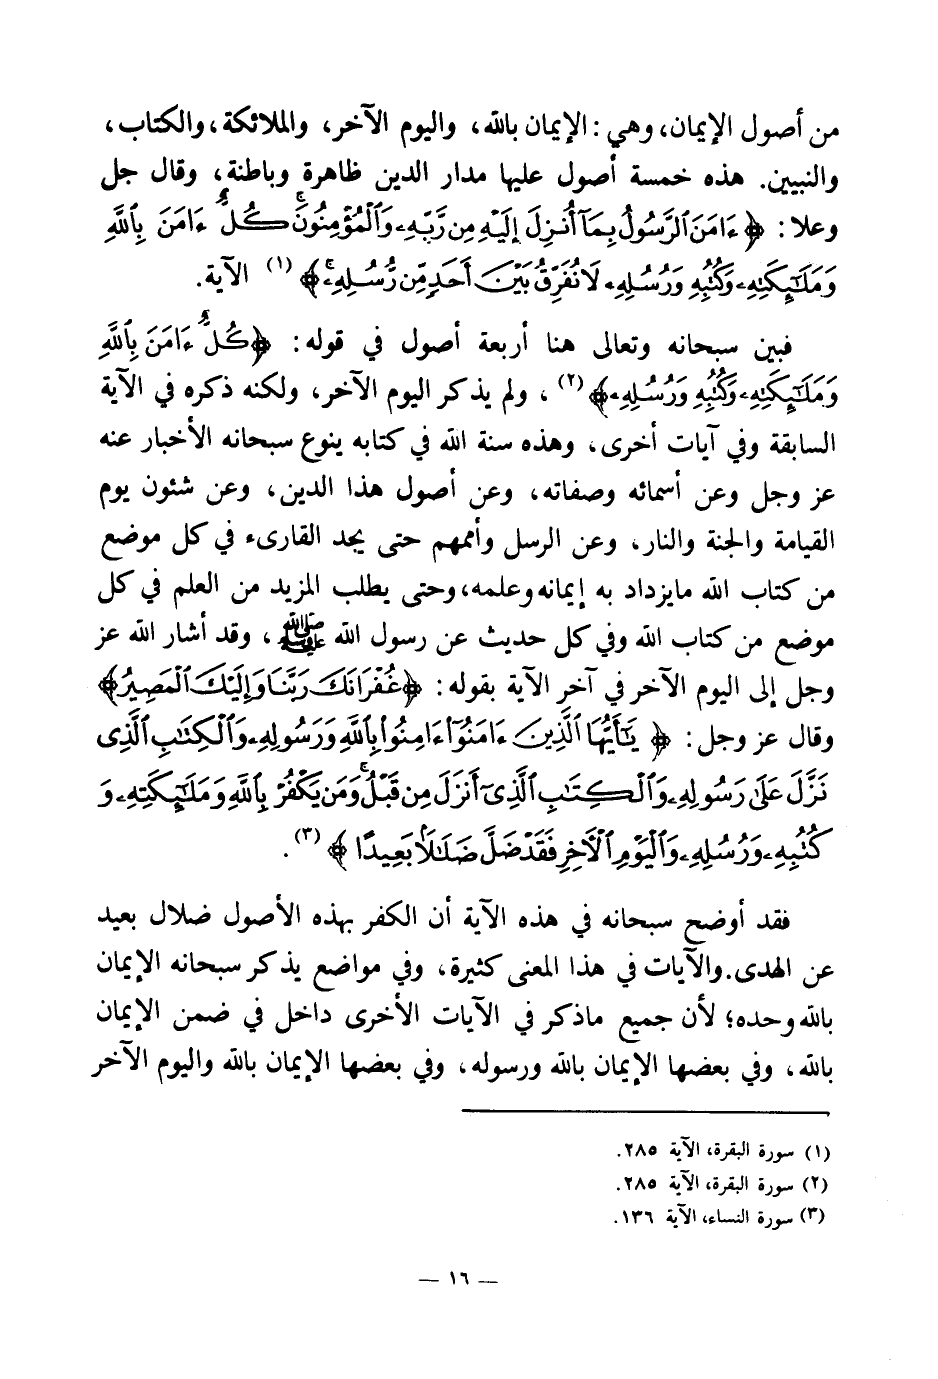 من أصول الإيمان، وهي : الإيمان بالله، واليوم الآخر، والملائكة، والكتاب،
والنبيين. هذه خمسة أصول عليها مدار الدين ظاهرة وباطنة، وقال جل
وعلا : ﴿ ءَامَنَ ٱلرَّسُولُ بِمَآ أُنزِلَ إِلَيْهِ مِن رَّبِّهِۦ وَٱلْمُؤْمِنُونَۚ كُلٌّ ءَامَنَ بِٱللَّهِ
وَمَلَـٰٓئِكَتِهِۦ وَكُتُبِهِۦ وَرُسُلِهِۦ لَا نُفَرِّقُ بَيْنَ أَحَدٍ مِّن رُّسُلِهِۦۚ ﴾ (١) الآية.
فبين سبحانه وتعالى هنا أربعة أصول في قوله : ﴿ كُلٌّ ءَامَنَ بِٱللَّهِ
وَمَلَـٰٓئِكَتِهِۦ وَكُتُبِهِۦ وَرُسُلِهِۦ ﴾ (٢) ، ولم يذكر اليوم الآخر، ولكنه ذكره في الآية
السابقة وفي آيات أخرى، وهذه سنة الله في كتابه ينوع سبحانه الأخبار عنه
عز وجل وعن أسمائه وصفاته، وعن أصول هذا الدين، وعن شئون يوم
القيامة والجنة والنار، وعن الرسل وأممهم حتى يجد القارىء في كل موضع
من كتاب الله مايزداد به إيمانه وعلمه، وحتى يطلب المزيد من العلم في كل
موضع من كتاب الله وفي كل حديث عن رسول الله ﷺ ، وقد أشار الله عز
وجل إلى اليوم الآخر في آخر الآية بقوله : ﴿ غُفْرَانَكَ رَبَّنَا وَإِلَيْكَ ٱلْمَصِيرُ ﴾
وقال عز وجل : ﴿ يَـٰٓأَيُّهَا ٱلَّذِينَ ءَامَنُوٓا۟ ءَامِنُوا۟ بِٱللَّهِ وَرَسُولِهِۦ وَٱلْكِتَـٰبِ ٱلَّذِى
نَزَّلَ عَلَىٰ رَسُولِهِۦ وَٱلْكِتَـٰبِ ٱلَّذِىٓ أَنزَلَ مِن قَبْلُۚ وَمَن يَكْفُرْ بِٱللَّهِ وَمَلَـٰٓئِكَتِهِۦ وَ
كُتُبِهِۦ وَرُسُلِهِۦ وَٱلْيَوْمِ ٱلْأَخِرِ فَقَدْ ضَلَّ ضَلَـٰلًا بَعِيدًا ﴾ (٣) .
فقد أوضح سبحانه في هذه الآية أن الكفر بهذه الأصول ضلال بعيد
عن الهدى. والآيات في هذا المعنى كثيرة، وفي مواضع يذكر سبحانه الإيمان
بالله وحده؛ لأن جميع ماذكر في الآيات الأخرى داخل في ضمن الإيمان
بالله، وفي بعضها الإيمان بالله ورسوله، وفي بعضها الإيمان بالله واليوم الآخر
(١) سورة البقرة، الآية ٢٨٥.
(٢) سورة البقرة، الآية ٢٨٥.
(٣) سورة النساء، الآية ١٣٦.
— ١٦ —